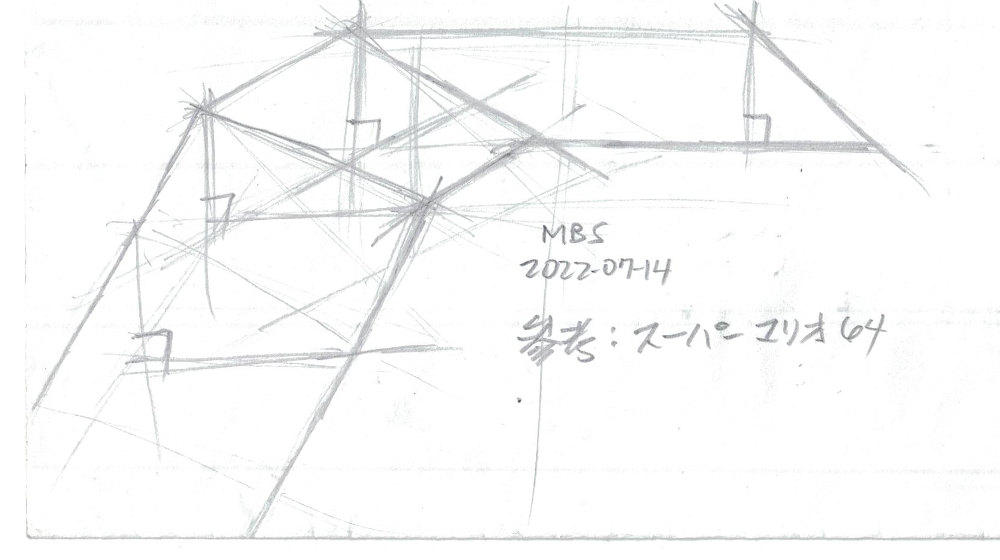 MBS
2022-07-14
参考：スーパーマリオ64